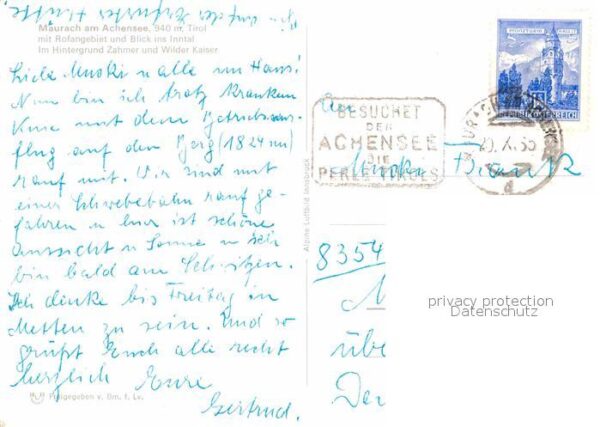 in auf der Erfurter Hütte
Maurach am Achensee, 940 m, Tirol
mit Rofangebiet und Blick ins Inntal
Im Hintergrund Zahmer und Wilder Kaiser
Liebe Mucki u alle im Haus!
Nun bin ich trotz kranken
Knie mit dem Betriebsaus-
flug auf den Berg (1824 m)
rauf mit. Wir sind mit
einer Schwebebahn rauf ge-
fahren u hier ist schöne
Aussicht u Sonne u
bin bald am Schwitzen.
Ich denke bis Freitag in
Metten zu sein. Und so
grüßt Euch alle recht
herzlich Eure
Gertrud.
Freigegeben v. Bm. f. Lv.
Alpine Luftbild Innsbruck
An
BESUCHET
DEN
ACHENSEE
DIE
PERLE TIROLS
REPUBLIK ÖSTERREICH
Mucki
8354
M
übe
De
privacy protection
Datenschutz